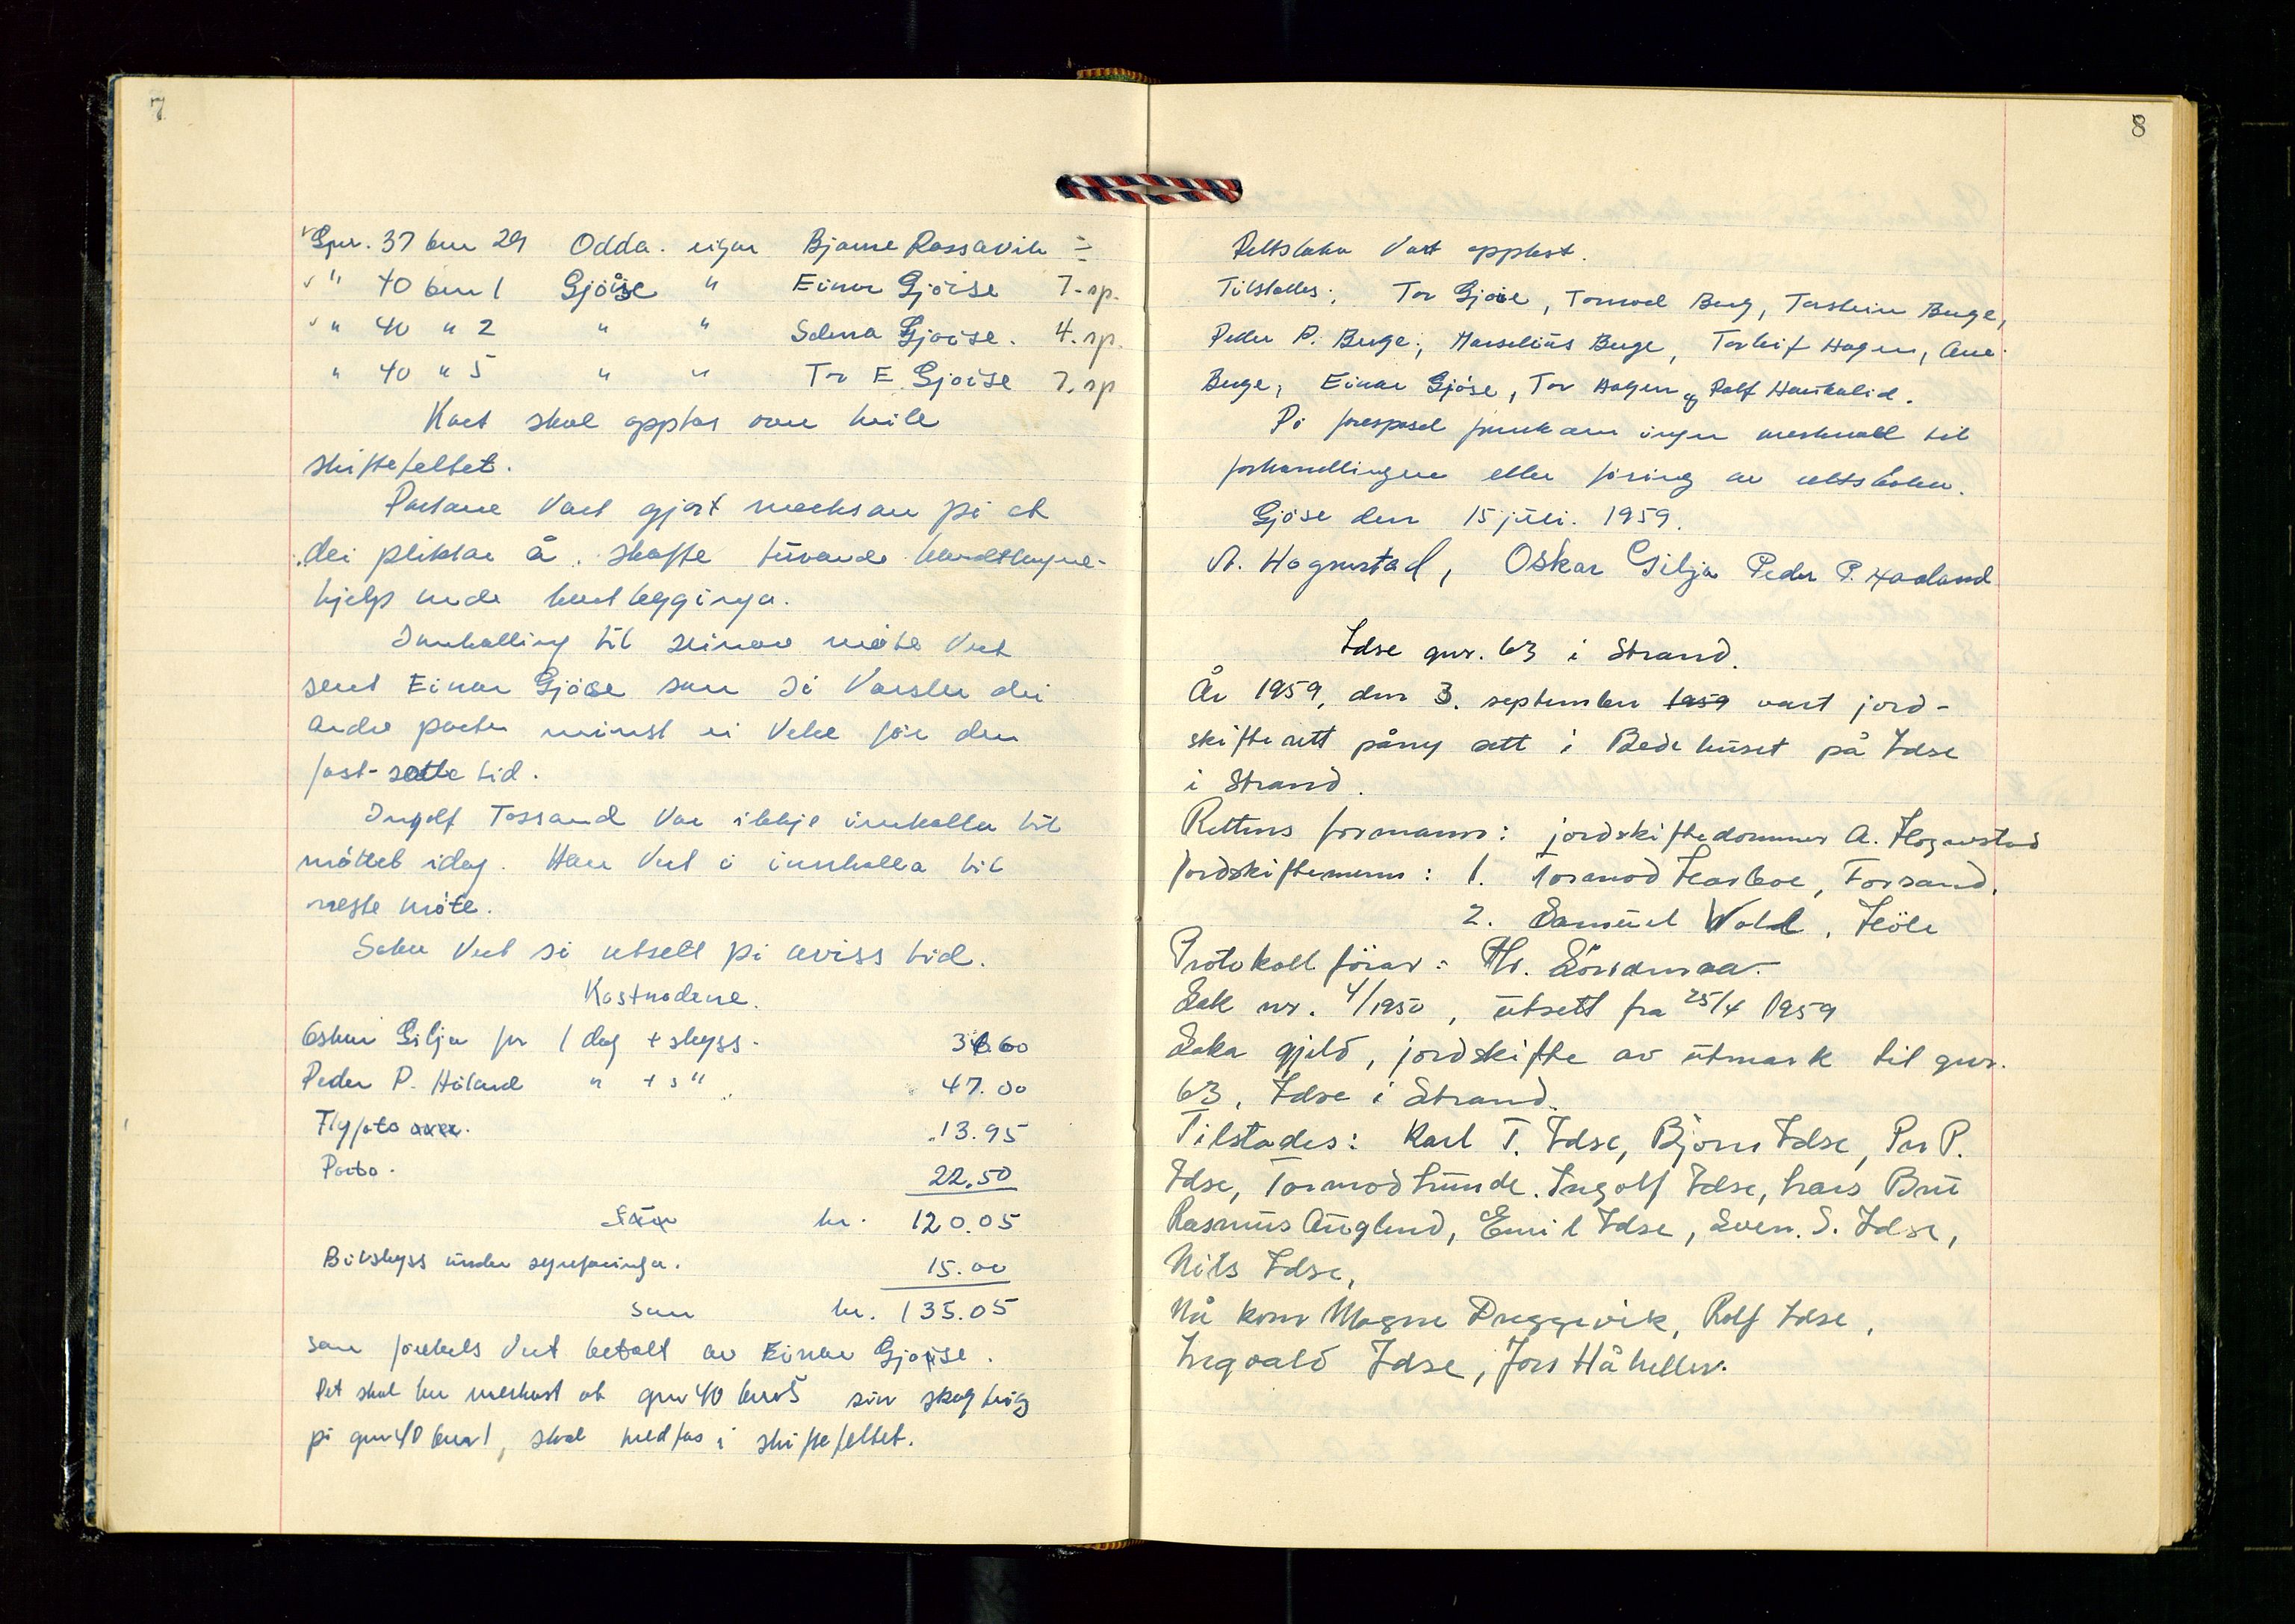 7
Gnr. 37 bnr 29 Odda. eigar Bjarne Rossavik =
" 40 bnr 1 Gjøise " Einar Gjøise 7. sp.
" 40 " 2 " " Selma Gjøise. 4. sp.
" 40 " 5 " " Tor E. Gjøise 7. sp
Kart skal opptas over heile
skiftefeltet.
Partane vart gjort merksam på at
dei pliktar å skaffe turvande
hjelp under kartlegginga.
Innkalling til seinare møte vert
sent Einar Gjøise som så varslar dei
andre parter minst ei veke før den
fast-satte tid.
Ingolf Tossand var ikkje innkalla til
møtet idag. Han vert å innkalla til
neste møte.
Saka vert så utsett på uviss tid.
Kostnadene.
Oskar Gilja for 1 dag + skyss. 36.60
Peder P. Håland " + s " 47.00
Flyfoto 13.95
Porto. 22.50
kr. 120.05
Bilskyss under synfaringa. 15.00
Sum kr. 135.05
som førebels vert betalt av Einar Gjøise.
Det skal her merkast at gnr 40 bnr 5 sin skogteig
på gnr 40 bnr 1, skal medtas i skiftefeltet.
8
Rettsboka vart opplest.
Tilstades: Tor Gjøise, Tormod Berg, Torstein Berge,
Peder P. Berge, Marselius Berge, Torleif Hagen, Ane
Berge, Einar Gjøse, Tor Hagen og Rolf Haukalid.
På forespørsel framkom ingen merknad til
forhandlingen eller føring av rettsboken.
Gjøse den 15 juli. 1959.
A. Hognestad, Oskar Gilja Peder P. Haaland
Idse gnr. 63 i Strand.
År 1959, den 3. september 1959 vart jord-
skifterett påny sett i Bedehuset på Idse
i Strand.
Rettens formann: jordskiftedommer A. Hognestad
Jordskiftemenn: 1. Tormod Haaboe, Forsand.
2. Samuel Wold, Høle
Protokollfører: Hr.
Sak nr. 4/1950, utsett fra 25/4 1959
Saka gjeld, jordskifte av utmark til gnr.
63, Idse i Strand.
Tilstades: Karl T. Idse, Bjørn Idse, Per P.
Idse, Tormod Lunde. Ingolf Idse, Lars Bru
Rasmus Auglend, Emil Idse, Sven. S. Idse,
Nils Idse,
Nå kom Magne Preggevik, Rolf Idse,
Ingvald Idse, Jørs Håheller.